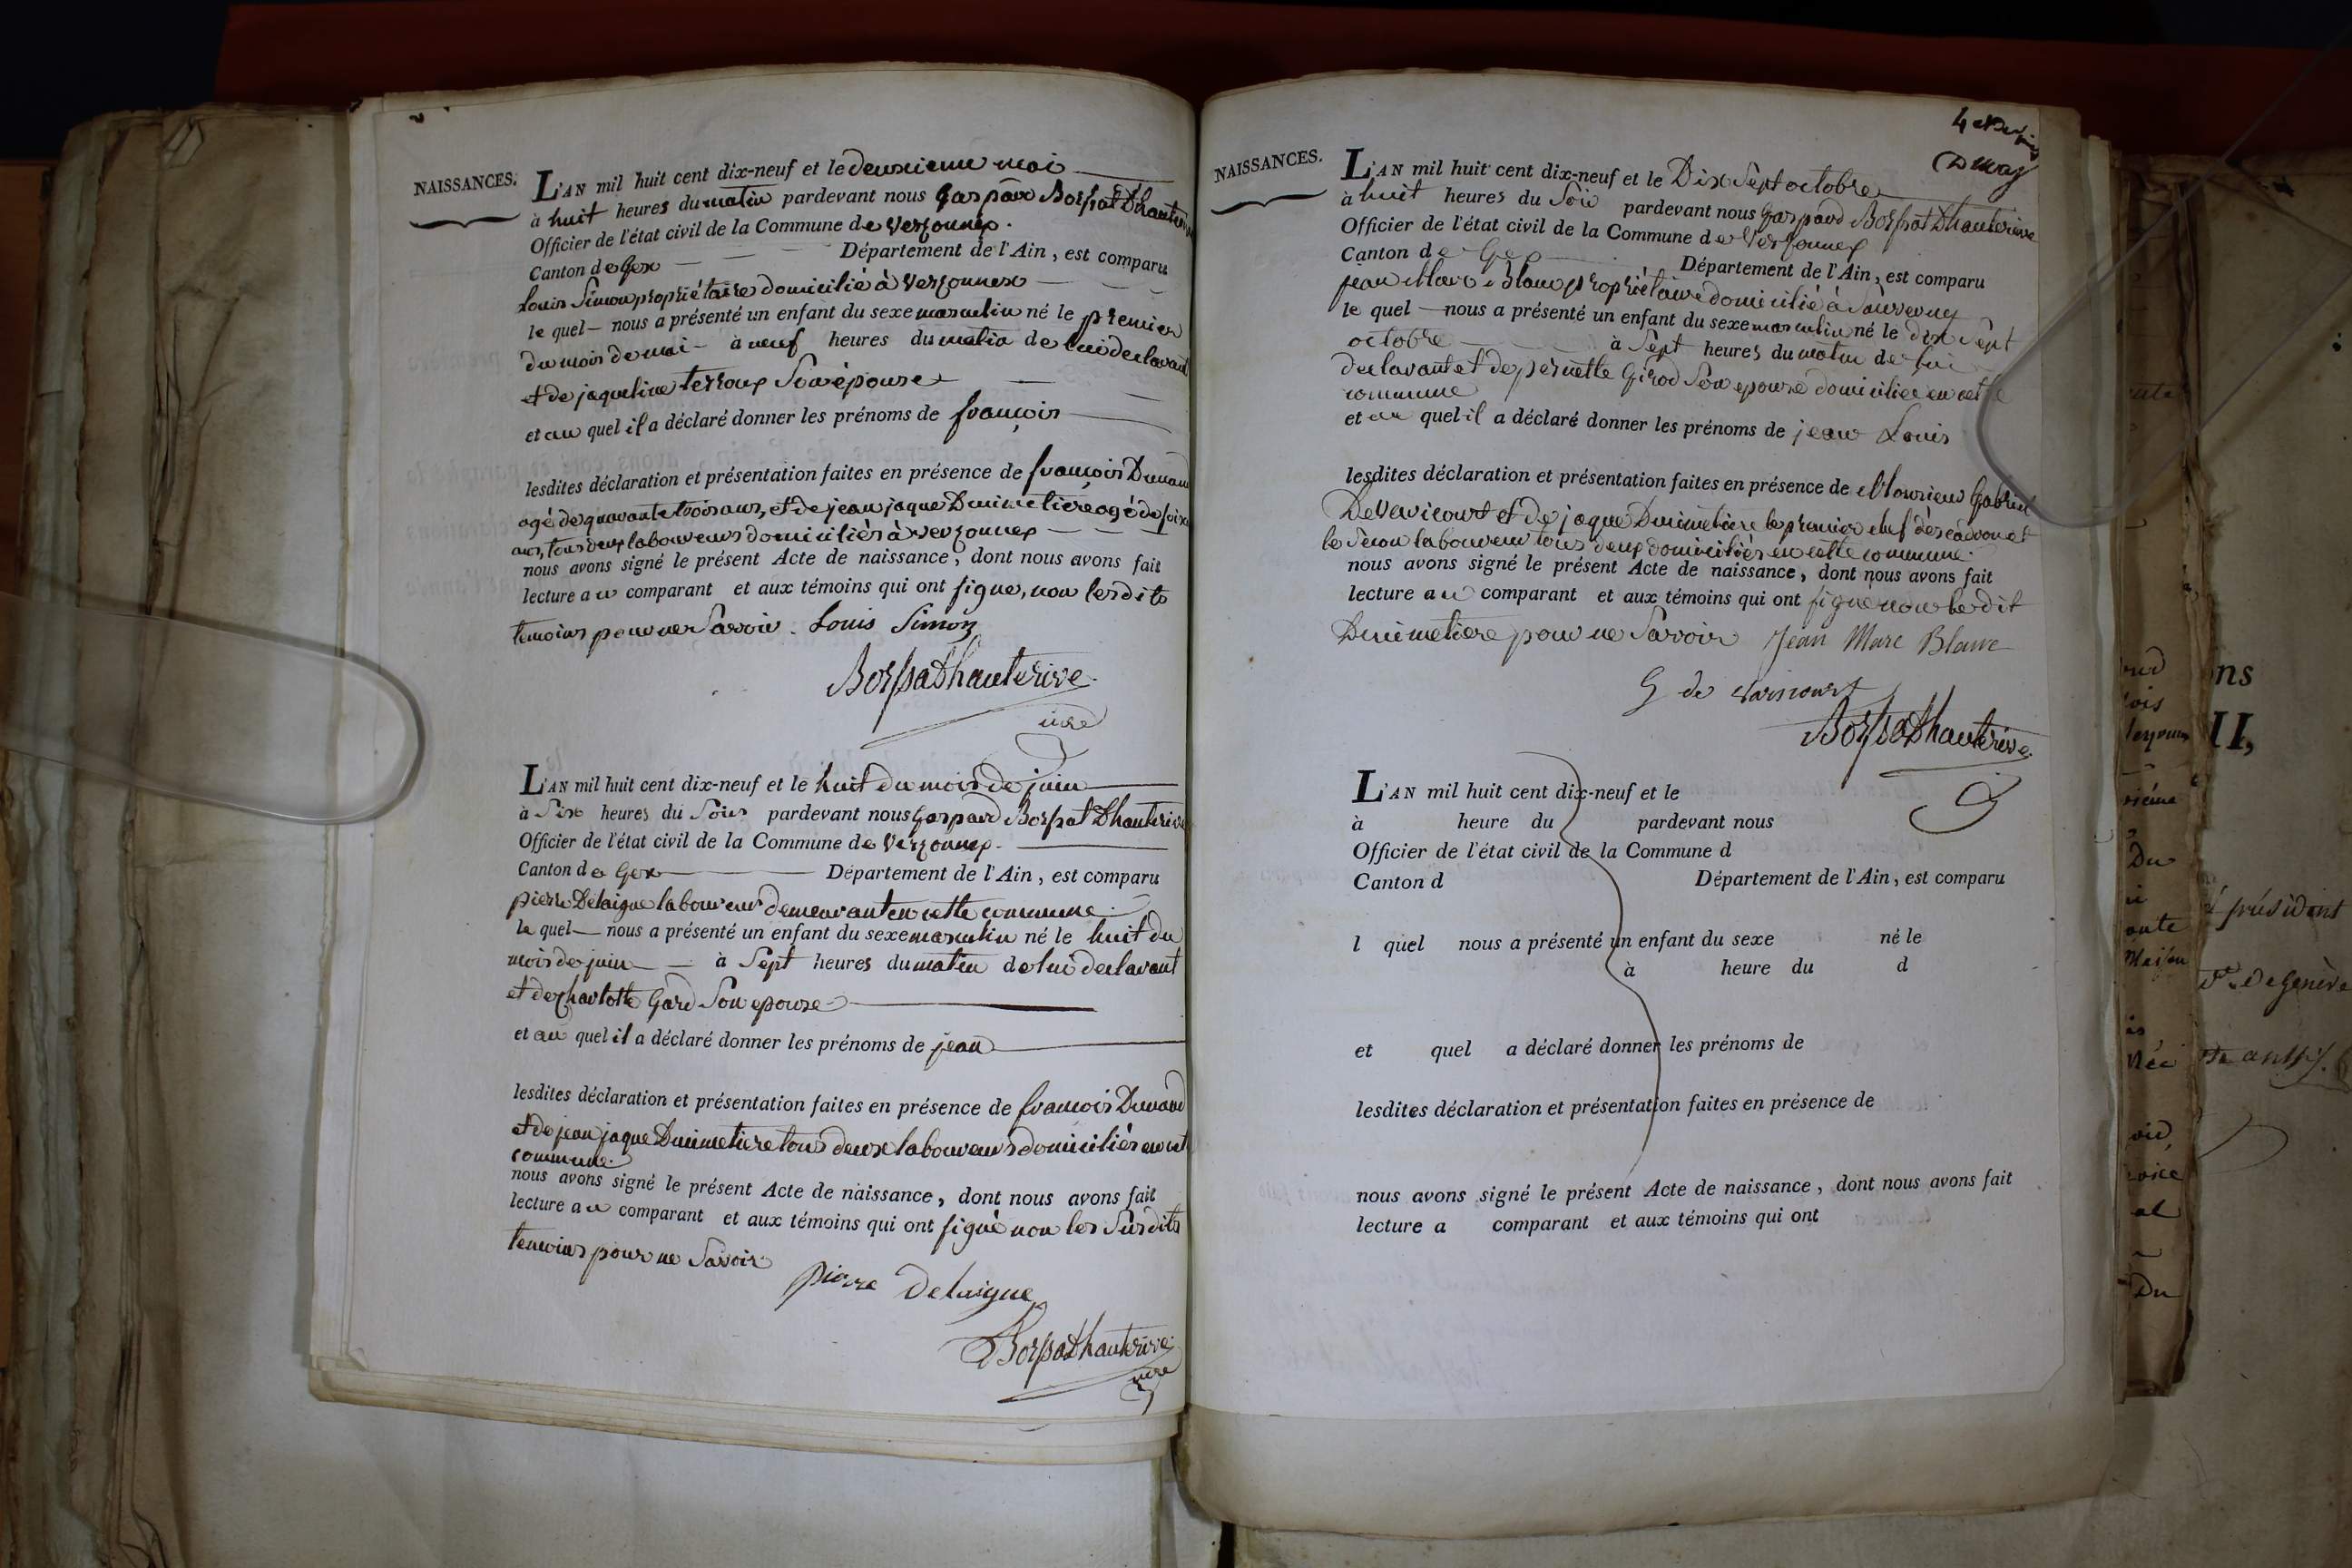 NAISSANCES.
L'AN mil huit cent dix-neuf et le deuxieme mai
à huit heures du matin pardevant nous Gaspard Borssat Dhauterive
Officier de l'état civil de la Commune de Versonnex.
Canton de Gex Département de l'Ain, est comparu
Louis Simon propriétaire domicilié à Versonnex
le quel nous a présenté un enfant du sexe masculin né le premier
du mois de mai à neuf heures du matin de lui declarant
et de jaqueline terroux Son épouse
et au quel il a déclaré donner les prénoms de françois
lesdites déclaration et présentation faites en présence de françois Dunand
agé de quarante trois ans, et de jean jaque Duimetiere agé de
ans, tous deux laboureurs domiciliés à versonnex
nous avons signé le présent Acte de naissance, dont nous avons fait
lecture au comparant et aux témoins qui ont signe, non lesdits
temoins pour ne Savoir. Louis Simon
Borssat Dhauterive
L'AN mil huit cent dix-neuf et le huit du mois de juin
à Six heures du Soir pardevant nous Gaspard Borssat Dhauterive
Officier de l'état civil de la Commune de Versonnex.
Canton de Gex Département de l'Ain, est comparu
pierre Delaigue laboureur demeurant en cette commune.
le quel nous a présenté un enfant du sexe masculin né le huit du
mois de juin à Sept heures du matin de lui declarant
et de charlotte Gard Son epouse
et au quel il a déclaré donner les prénoms de jean
lesdites déclaration et présentation faites en présence de françois Dunand
et de jean jaque Duimetiere tous deux laboureurs domiciliés en cet
commune.
nous avons signé le présent Acte de naissance, dont nous avons fait
lecture au comparant et aux témoins qui ont signé non les Susdits
temoins pour ne Savoir
pierre Delaigue
Borssat Dhauterive
NAISSANCES.
L'AN mil huit cent dix-neuf et le Dix Sept octobre
à huit heures du Soir pardevant nous Gaspard Borssat Dhauterive
Officier de l'état civil de la Commune de Versonnex
Canton de Gex Département de l'Ain, est comparu
jean Marc Blanc propriétaire domicilié à Sauverny
le quel nous a présenté un enfant du sexe masculin né le dix Sept
octobre à Sept heures du matin de lui
declarant et de pernette Girod Son epouse domiciliee en cette
commune
et au quel il a déclaré donner les prénoms de jean Louis
lesdites déclaration et présentation faites en présence de Monsieur Gabriel
et de jaque Duimetiere le premier chef d'escadron et
le Secon laboureur tous deux domiciliés en cette commune.
nous avons signé le présent Acte de naissance, dont nous avons fait
lecture au comparant et aux témoins qui ont signé non ledit
Duimetiere pour ne Savoir Jean Marc Blanc
Borssat Dhauterive
L'AN mil huit cent dix-neuf et le
à heure du pardevant nous
Officier de l'état civil de la Commune d
Canton d Département de l'Ain, est comparu
l quel nous a présenté un enfant du sexe né le
à heure du d
et quel a déclaré donner les prénoms de
lesdites déclaration et présentation faites en présence de
nous avons signé le présent Acte de naissance, dont nous avons fait
lecture a comparant et aux témoins qui ont
ns
II,
président
Genève